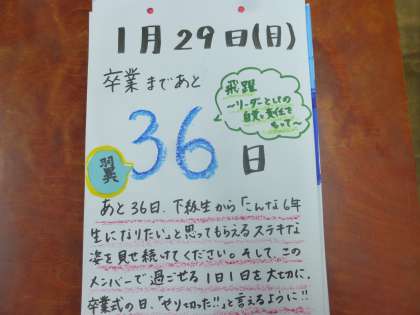 1月29日(月)
卒業まであと
飛躍
～リーダーとしての
自覚と責任を
もって～
36日
翼
あと36日、下級生から「こんな6年
生になりたい」と思ってもらえるステキな
姿を見せ続けてください。そして、この
メンバーで過ごせる1日1日を大切に、
卒業式の日、「やりきった!!」と言えるように!!